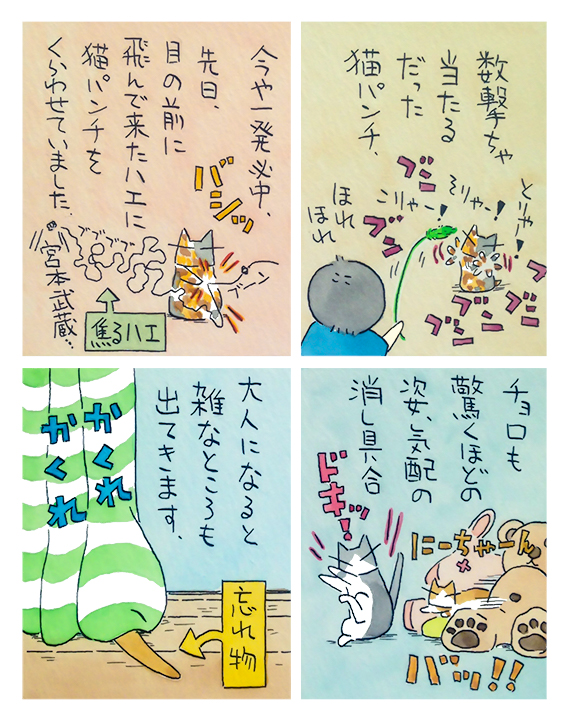 数撃ちゃ
当たる
だった
猫パンチ、
とりゃー!
そりゃー!
こりゃー!
ブン
ブン
ブン
ブン
ブン
ブ
ほれ
ほれ
今や一発必中、
先日、
目の前に
飛んで来たハエに
猫パンチを
くらわせていました。
バシッ
ブーン
ブブブブ
宮本武蔵…
焦るハエ
チョロも
驚くほどの
姿、気配の
消し具合
ドキッ!
にーちゃーん
バッ!!
大人になると
雑なところも
出てきます。
かくれ
かくれ
忘れ物